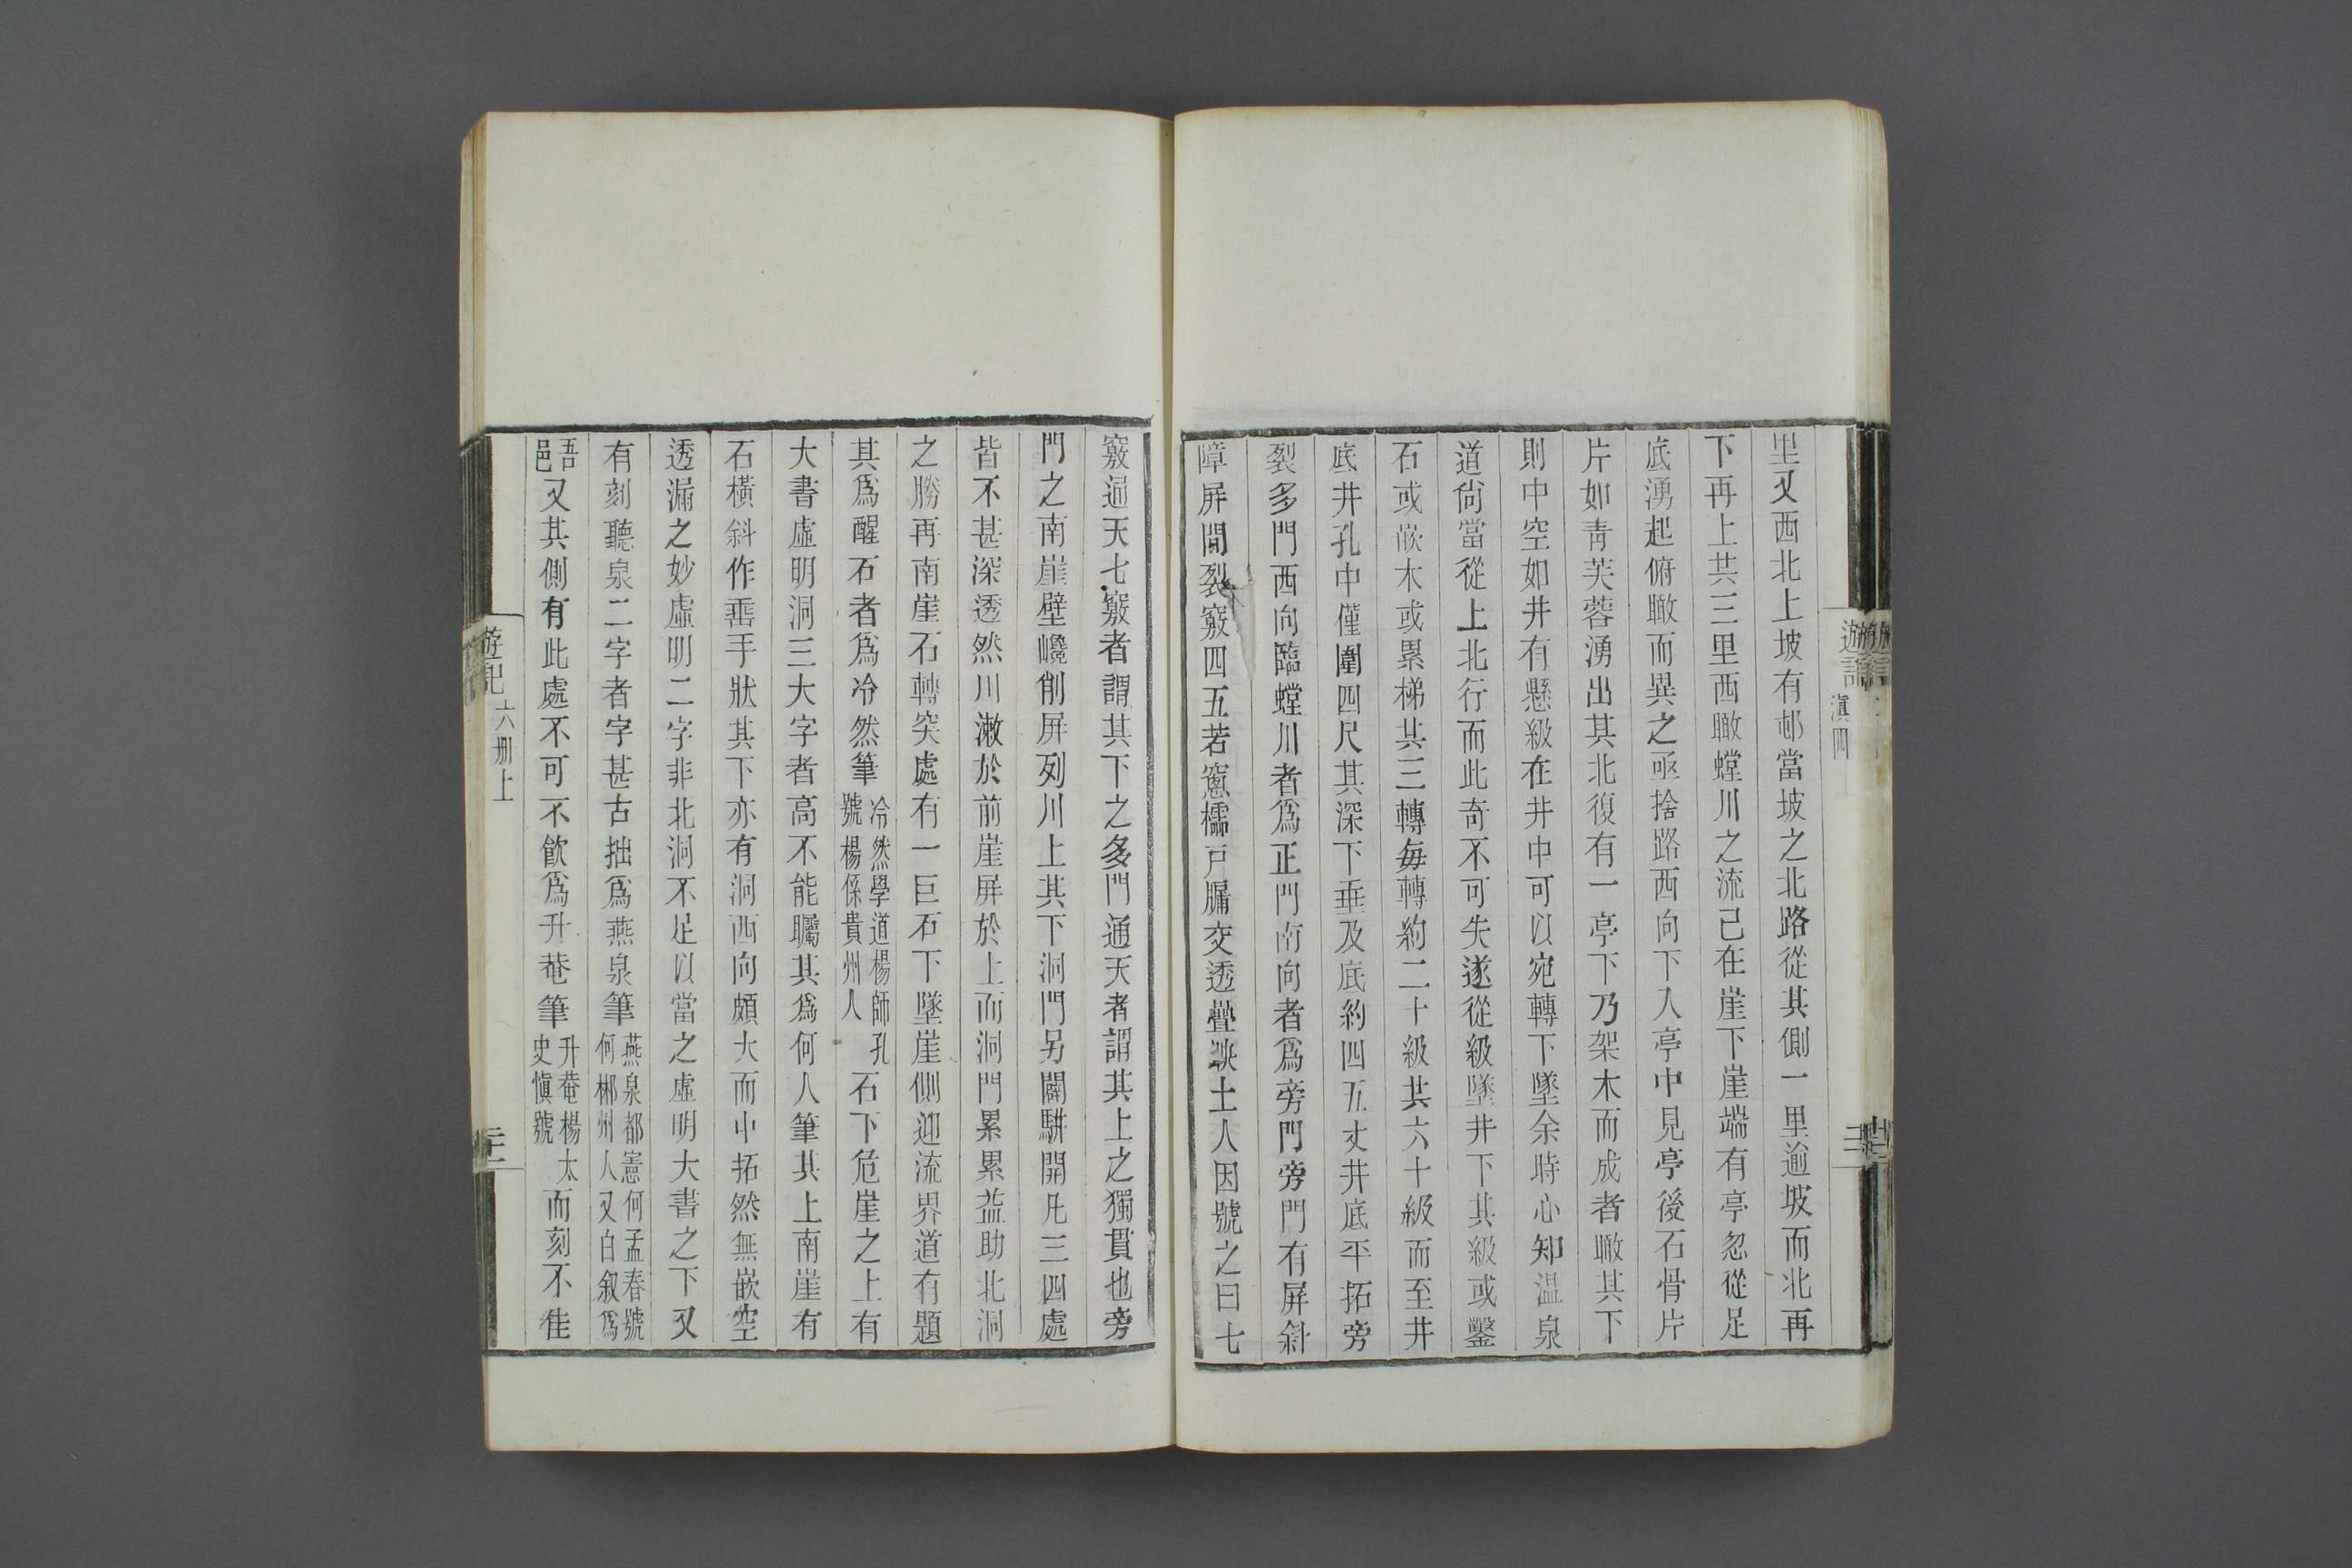 遊記
滇四
里又西北上坡有邨當坡之北路從其側一里逾坡而北再
下再上共三里西瞰螳川之流已在崖下崖端有亭忽從足
底湧起俯瞰而異之亟捨路西向下入亭中見亭後石骨片
片如青芙蓉湧出其北復有一亭下乃架木而成者瞰其下
則中空如井有懸級在井中可以宛轉下墜余時心知温泉
道尙當從上北行而此奇不可失遂從級墜井下其級或鑿
石或嵌木或累梯共三轉每轉約二十級共六十級而至井
底井孔中僅圍四尺其深下垂及底約四五丈井底平拓旁
裂多門西向臨螳川者爲正門南向者爲旁門旁門有屏斜
障屏間裂竅四五若窻櫺戸牖交透疊映土人因號之曰七
竅通天七竅者謂其下之多門通天者謂其上之獨貫也旁
門之南崖壁巉削屏列川上其下洞門另闢駢開凡三四處
皆不甚深透然川漱於前崖屏於上而洞門累累益助北洞
之勝再南崖石轉突處有一巨石下墜崖側迎流界道有題
其爲醒石者爲冷然筆冷然學道楊師孔號楊係貴州人石下危崖之上有
大書虛明洞三大字者高不能矚其爲何人筆其上南崖有
石橫斜作垂手狀其下亦有洞西向頗大而中拓然無嵌空
透漏之妙虛明二字非北洞不足以當之虛明大書之下又
有刻聽泉二字者字甚古拙爲燕泉筆燕泉都憲何孟春號何郴州人又白叙爲
吾邑又其側有此處不可不飲爲升菴筆升菴楊太史愼號而刻不佳
遊記
六册上